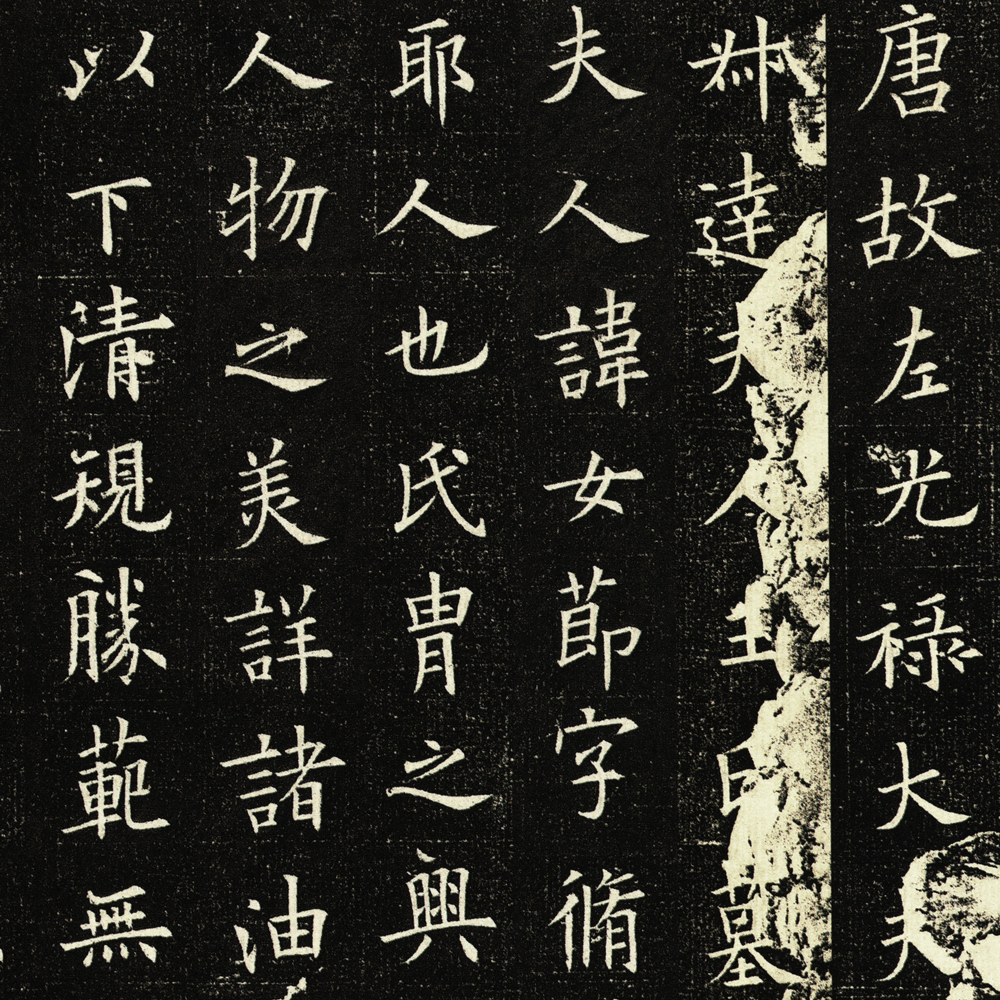 唐故左光禄大夫
叔達夫人王墓
夫人諱女節字脩
耶人也氏胄之興
人物之美詳諸油
以下清規勝範無